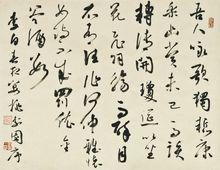 吾人詠歌獨慚康
樂幽賞未已高談
轉清開瓊筵以坐
花飛羽觴而醉月
不有佳作何伸雅懷
如詩不成罰依金
谷酒數
李白春夜宴桃李園序